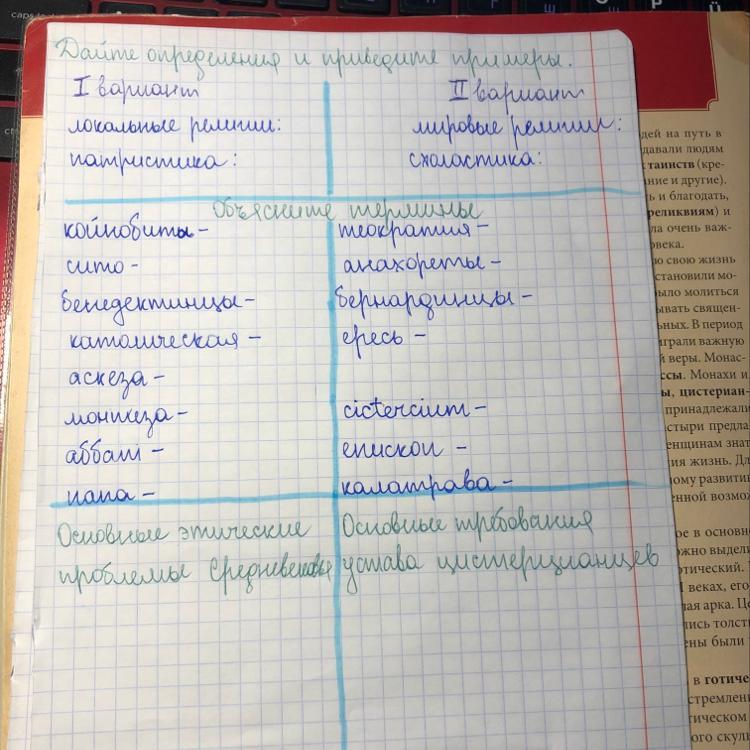 Дайте определения и приведите примеры.
I вариант
локальные религии:
патристика:
II вариант
мировые религии:
схоластика:
Объясните термины
койнобиты -
сито -
бенедектинцы -
католическая -
аскеза -
монтеза -
аббат -
папа -
теократия -
анахореты -
бернардинцы -
ересь -
cictercium -
епископ -
калатрава -
Основные этические
проблемы Средневековья
Основные требования
устава цистерцианцев
дей на путь в
давали людям
таинств (кре-
ние и другие).
ь и благодать,
реликвиям) и
ла очень важ-
овека.
ю свою жизнь
становили мо-
ыло молиться
ывать священ-
ных. В период
играли важную
й веры. Монас-
ссы. Монахи и
ы, цистериан-
принадлежали
стыри предла
енщинам знат
ия жизнь. Дл
ому развитию
енной возмож
ое в основно
ожно выдели
отический. 
веках, его
лая арка. Це
лись толсты
ены были
в готиче
стремлен
тическом
ого скуль